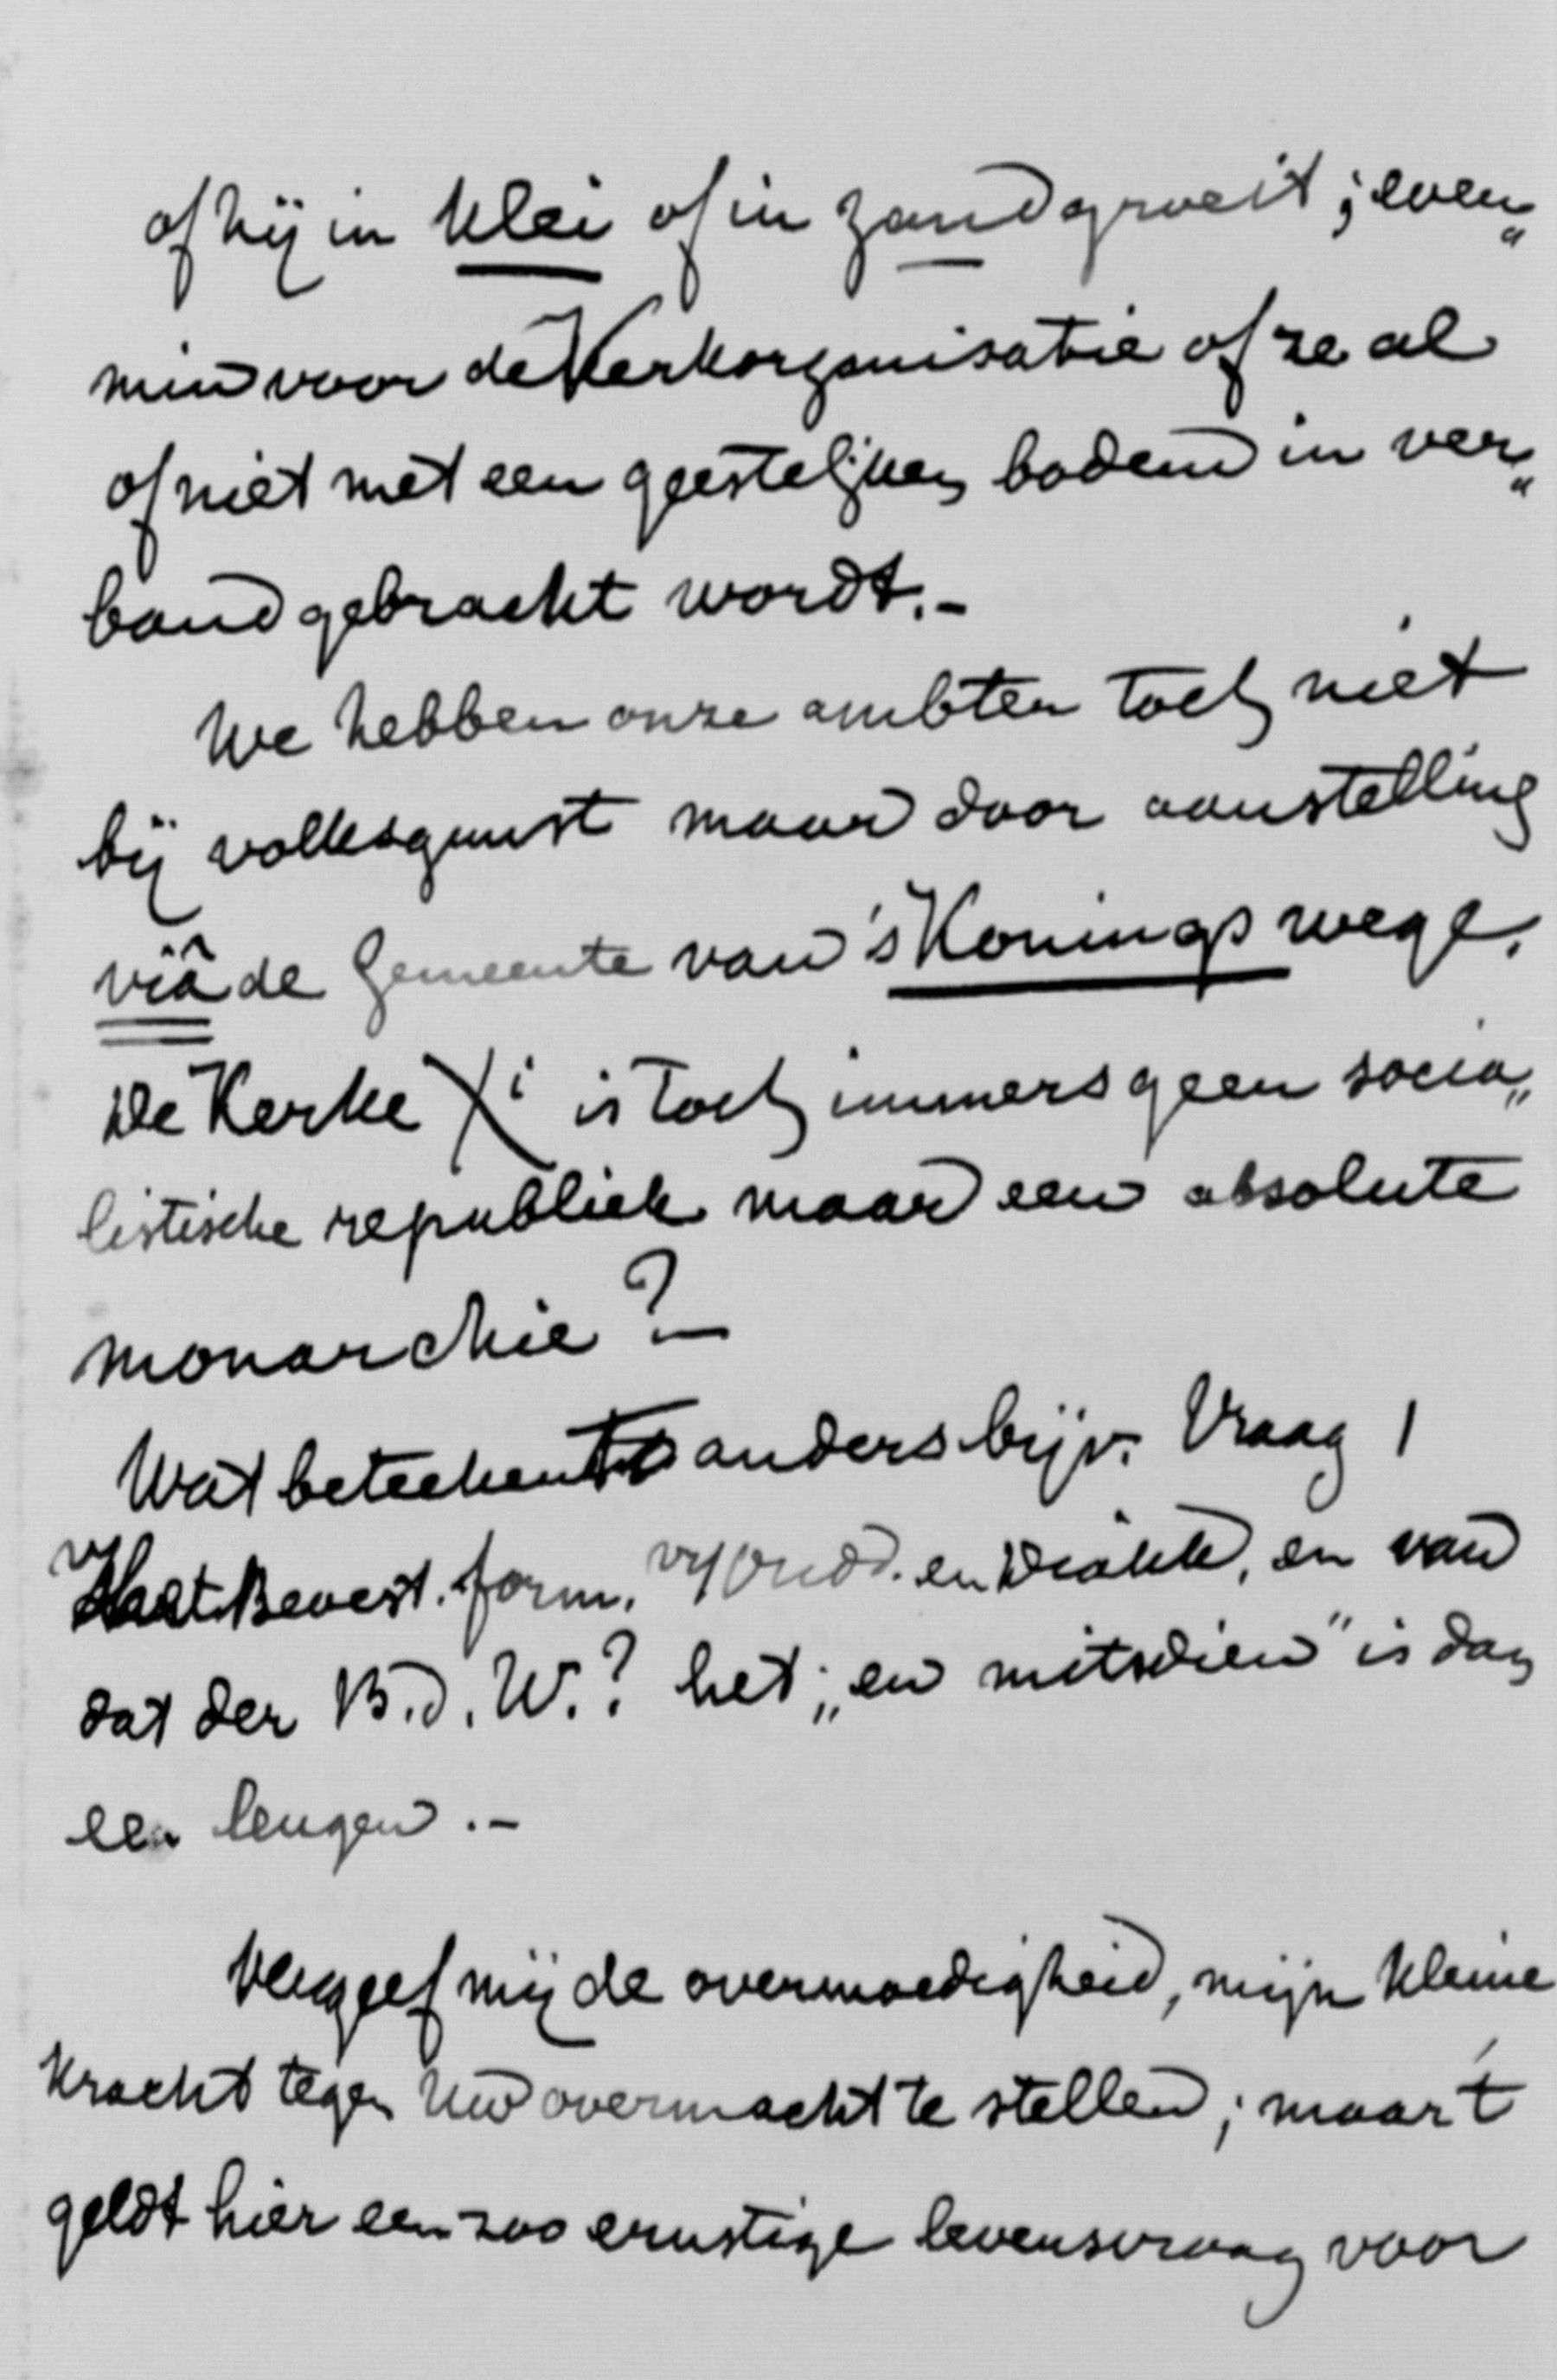 of hij in klei of in zand groeit; even„
min voor de Kerkorganisatie of ze al
of niet met een geestelijken bodem in ver„
band gebracht wordt.-
We hebben onze ambten toch niet
bij volksgunst maar door aanstelling
viâ de Gemeente van 's Konings wege.
De Kerke Xi is toch immers geen socia„
listische republiek maar een absolute
monarchie?-
Wat beteekent anders bijv. Vraag 1
v/ Bevest. form. v/ Oudd. en Diakk, en van
dat der B.d.W.? het „en mitsdien" is dan
een leugen.-
Vergeef mij de overmoedigheid, mijn kleine
kracht tegen Uw overmacht te stellen; maar 't
geldt hier een zoo ernstige levensvraag voor